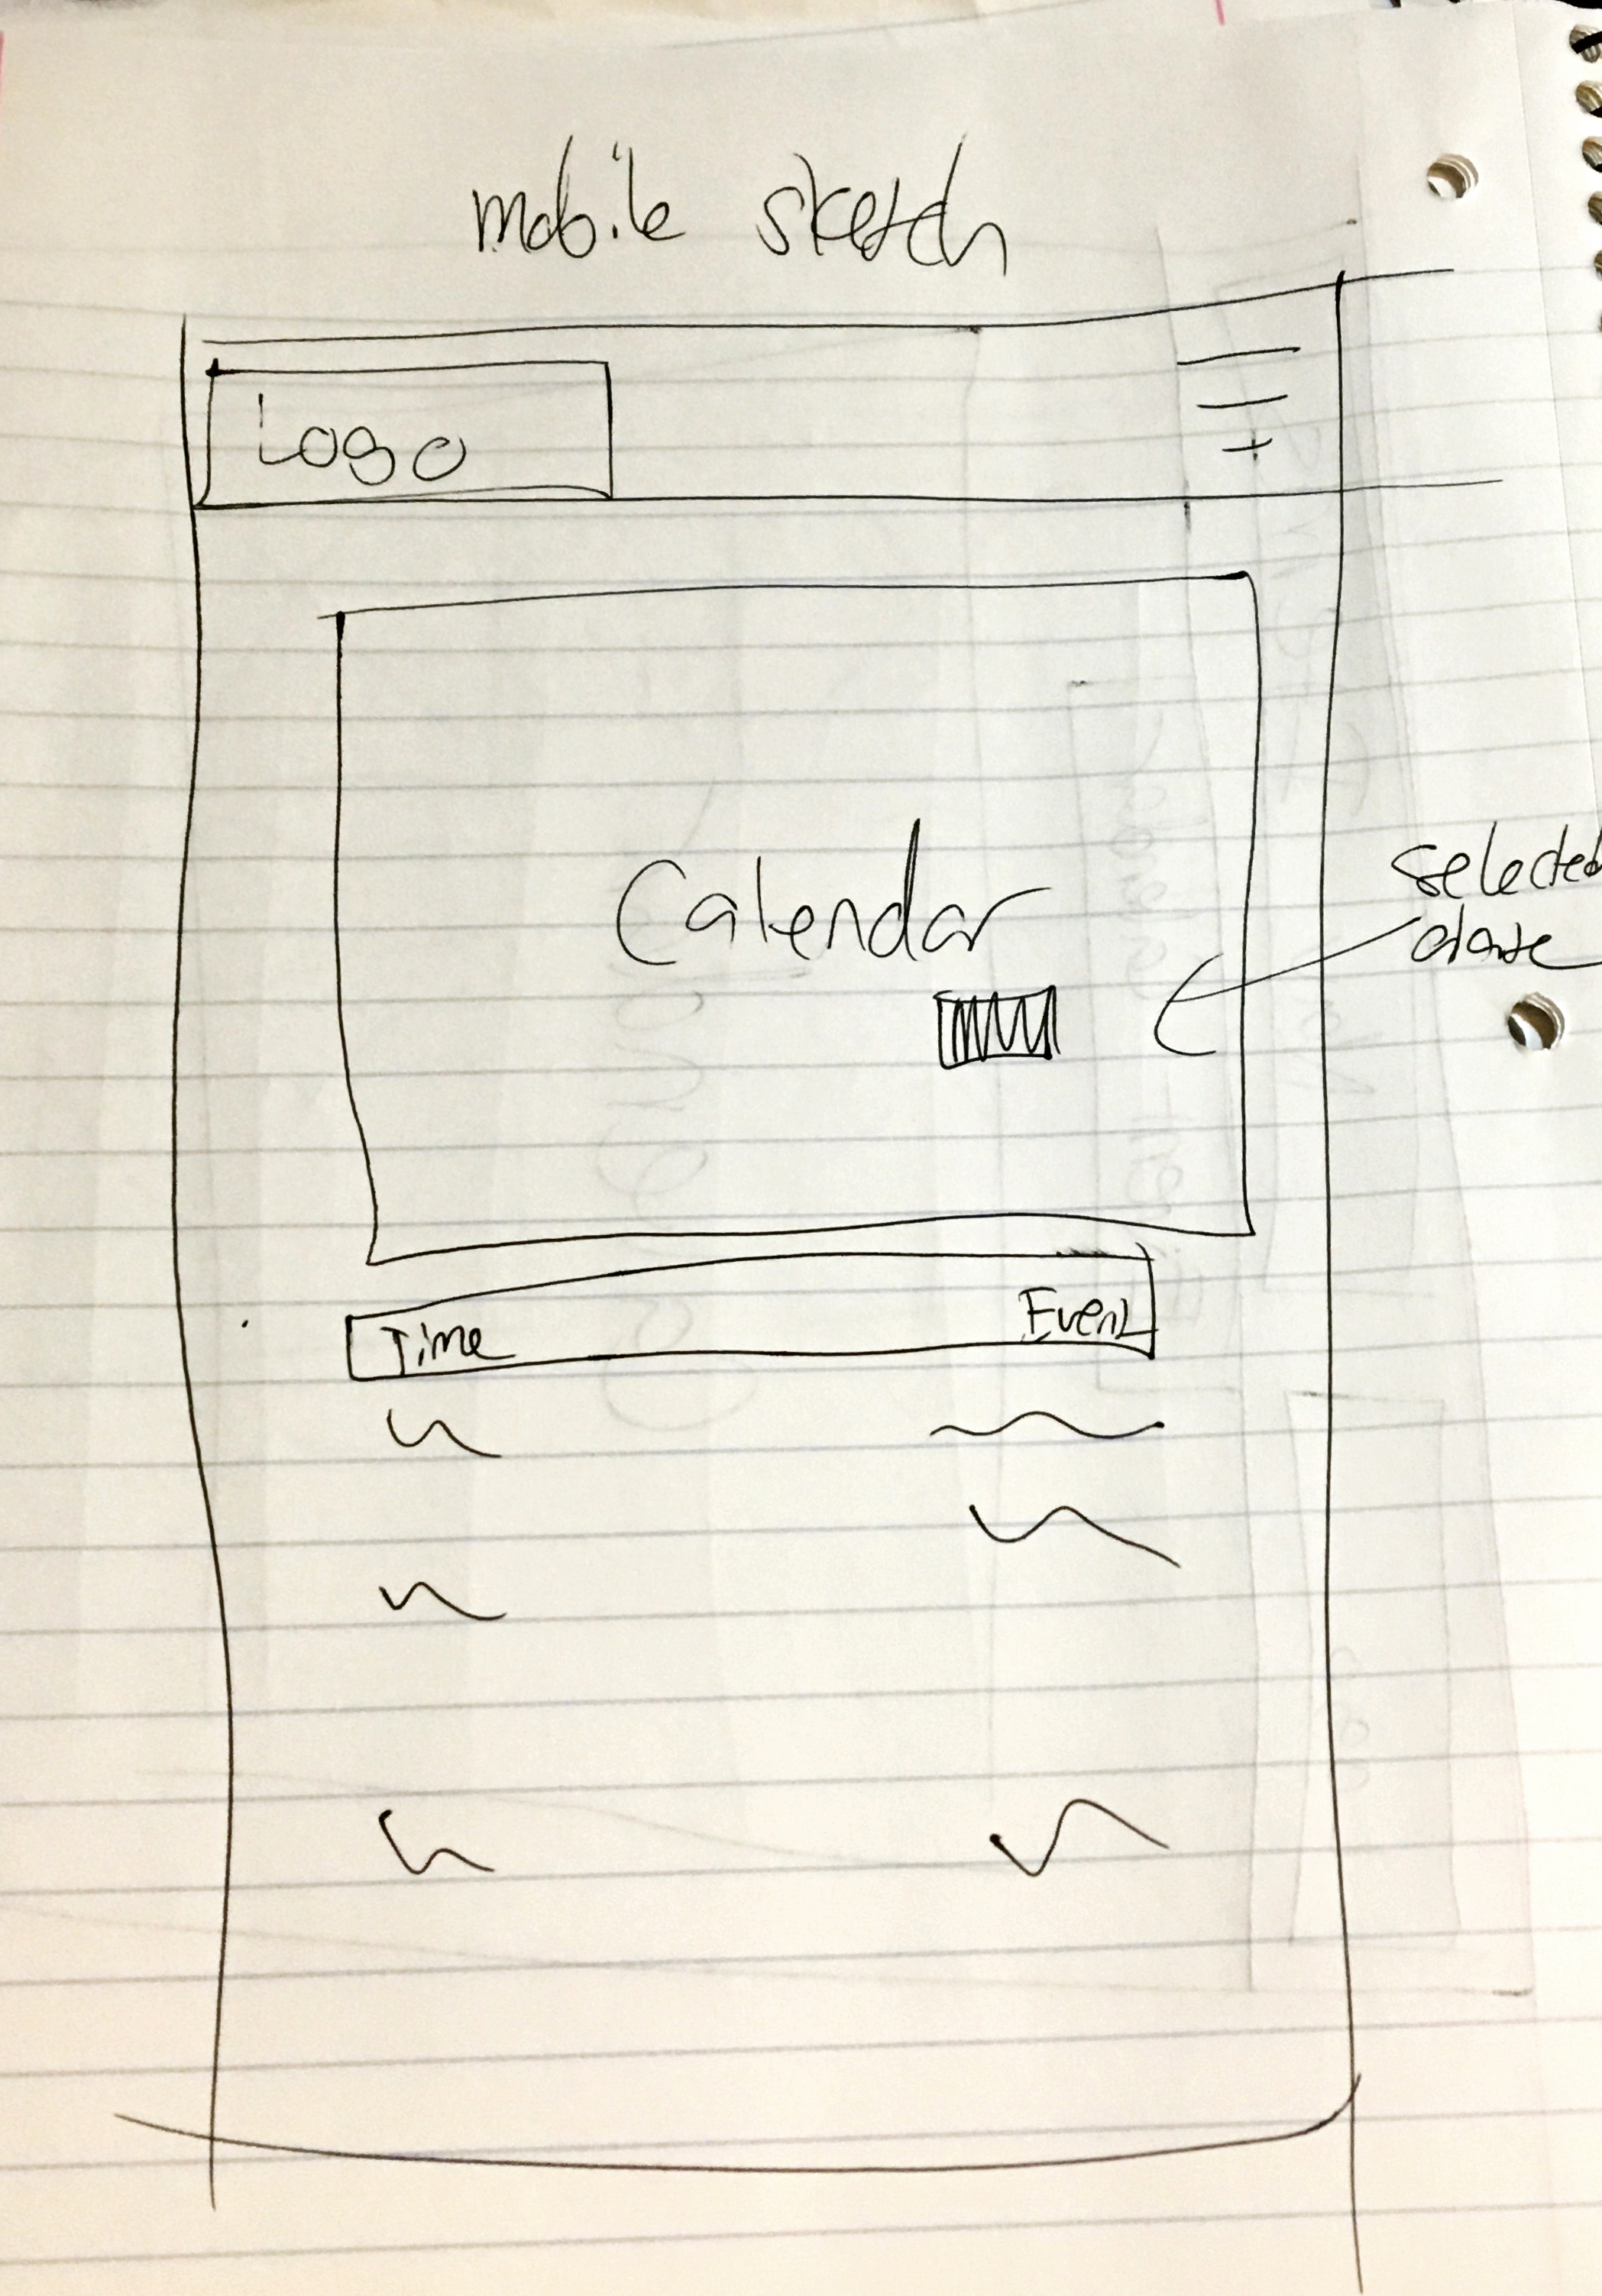 mobile sketch
Logo
Calendar
selected
date
Time
Event